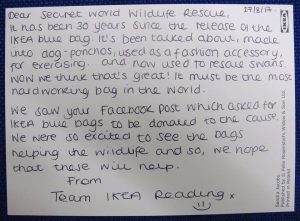 Dear Secret World Wildlife Rescue,
27/8/17
It has been 30 years since the release of the
IKEA blue bag. It's been talked about, made
into dog-ponchos, used as a fashion accessory,
for exercising. and now used to rescue swans
Now we think that's great! It must be the most
hardworking bag in the world.
We saw your Facebook Post which asked for
IKEA blue bags to be donated to the cause.
We were so excited to see the bags
helping the wildlife and so, we hope
that these will help.
From
Team IKEA Reading x
IKEA
Sandra Jacobs
Published by © Felix Rosenstiel's Widow & Son Ltd.